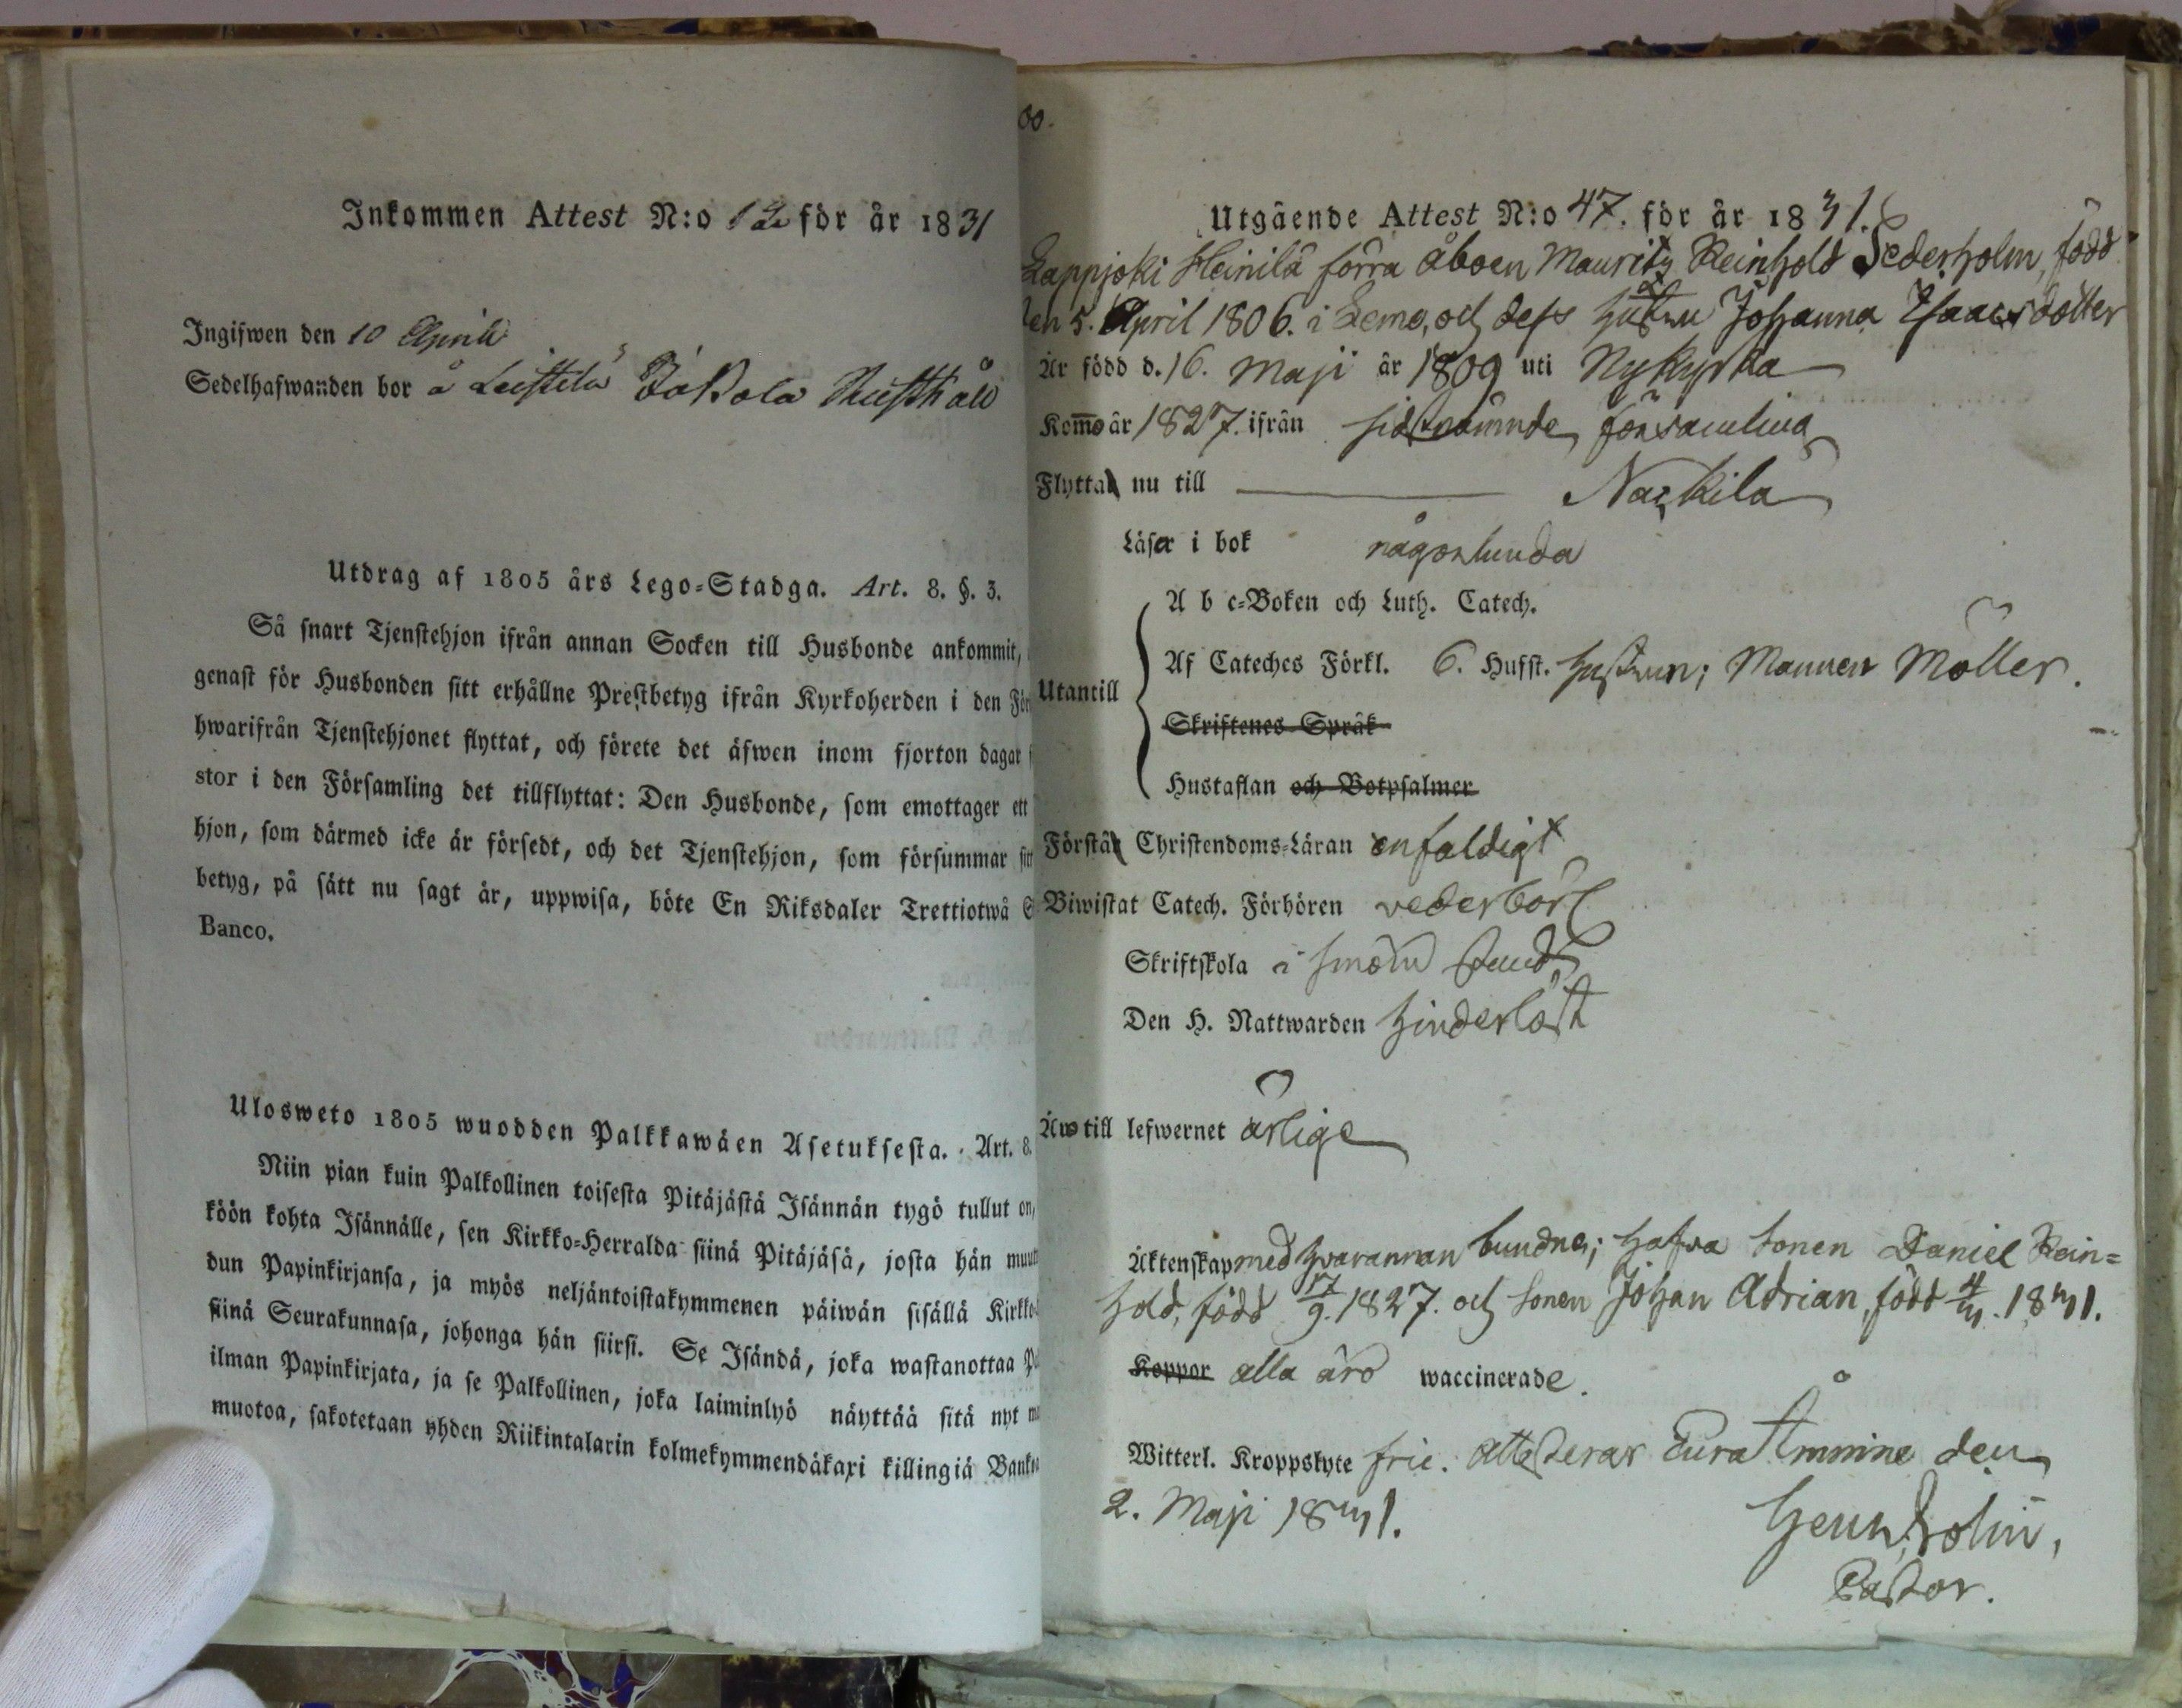 Inkommen Attest N:o 12 för år 1831
Ingifwen den 10 April
Sedelhafwanden bor å Leistilä Jakola Rusthåll
Utdrag af 1805 års Lego-Stadga. Art. 8. §. 3.
Så snart Tjenstehjon ifrån annan Socken till Husbonde ankommit,
genast för Husbonden sitt erhållne Prestbetyg ifrån Kyrkoherden i den För
hwarifrån Tjenstehjonet flyttat, och förete det äfwen inom fjorton dagar
stor i den Församling det tillflyttat: Den Husbonde, som emottager ett
hjon, som därmed icke är försedt, och det Tjenstehjon, som försummar sitt
betyg, på sätt nu sagt är, uppwisa, böte En Riksdaler Trettiotwå S
Banco.
Ulosweto 1805 wuodden Palkkawäen Asetuksesta. Art. 8.
Niin pian kuin Palkollinen toisesta Pitäjästä Isännän tygö tullut on,
köön kohta Isännälle, sen Kirkko-Herralda siinä Pitäjäsä, josta hän muut
dun Papinkirjansa, ja myös neljäntoistakymmenen päiwän sisällä Kirkko
siinä Seurakunnasa, johonga hän siirsi. Se Isändä, joka wastanottaa P
ilman Papinkirjata, ja se Palkollinen, joka laiminlyö näyttää sitä nyt
muotoa, sakotetaan yhden Riikintalarin kolmekymmendäkaxi killingiä Banko
00.
Utgående Attest N:o 47. för år 1831.
Lappjoki Heinilä förra åboen Mauritz Reinhold Sederholm, född
den 5. April 1806. i Lemo, och dess hustru Johanna Isaacsdotter
Är född d. 16. Maji år 1809 uti Nykyrka
Kommo år 1827. ifrån sidstnämnde församling
Flytta nu till Nackila
Läser i bok någorlunda
A b c-Boken och Luth. Catech.
Utantill
Af Cateches Förkl. 6. Hufst. hustrun; Mannen Möller.
Skriftenes Språk
Hustaflan och Botpsalmer
Förstå Christendoms-Läran enfaldigt
Biwistat Catech. Förhören vederbörl
Skriftskola i
Den H. Nattwarden hinderlöst
Äro till lefwernet ärlige
Äktenskap med hvarannan bundne; hafva sonen Daniel Rein=
hold, född 17/9. 1827. och sonen Johan Adrian, född 4/3. 1831.
Koppor alla äro waccinerade.
Witterl. Kroppslyte frie. Attesterar Eura Åminne den
2. Maji 1831.
Pastor.